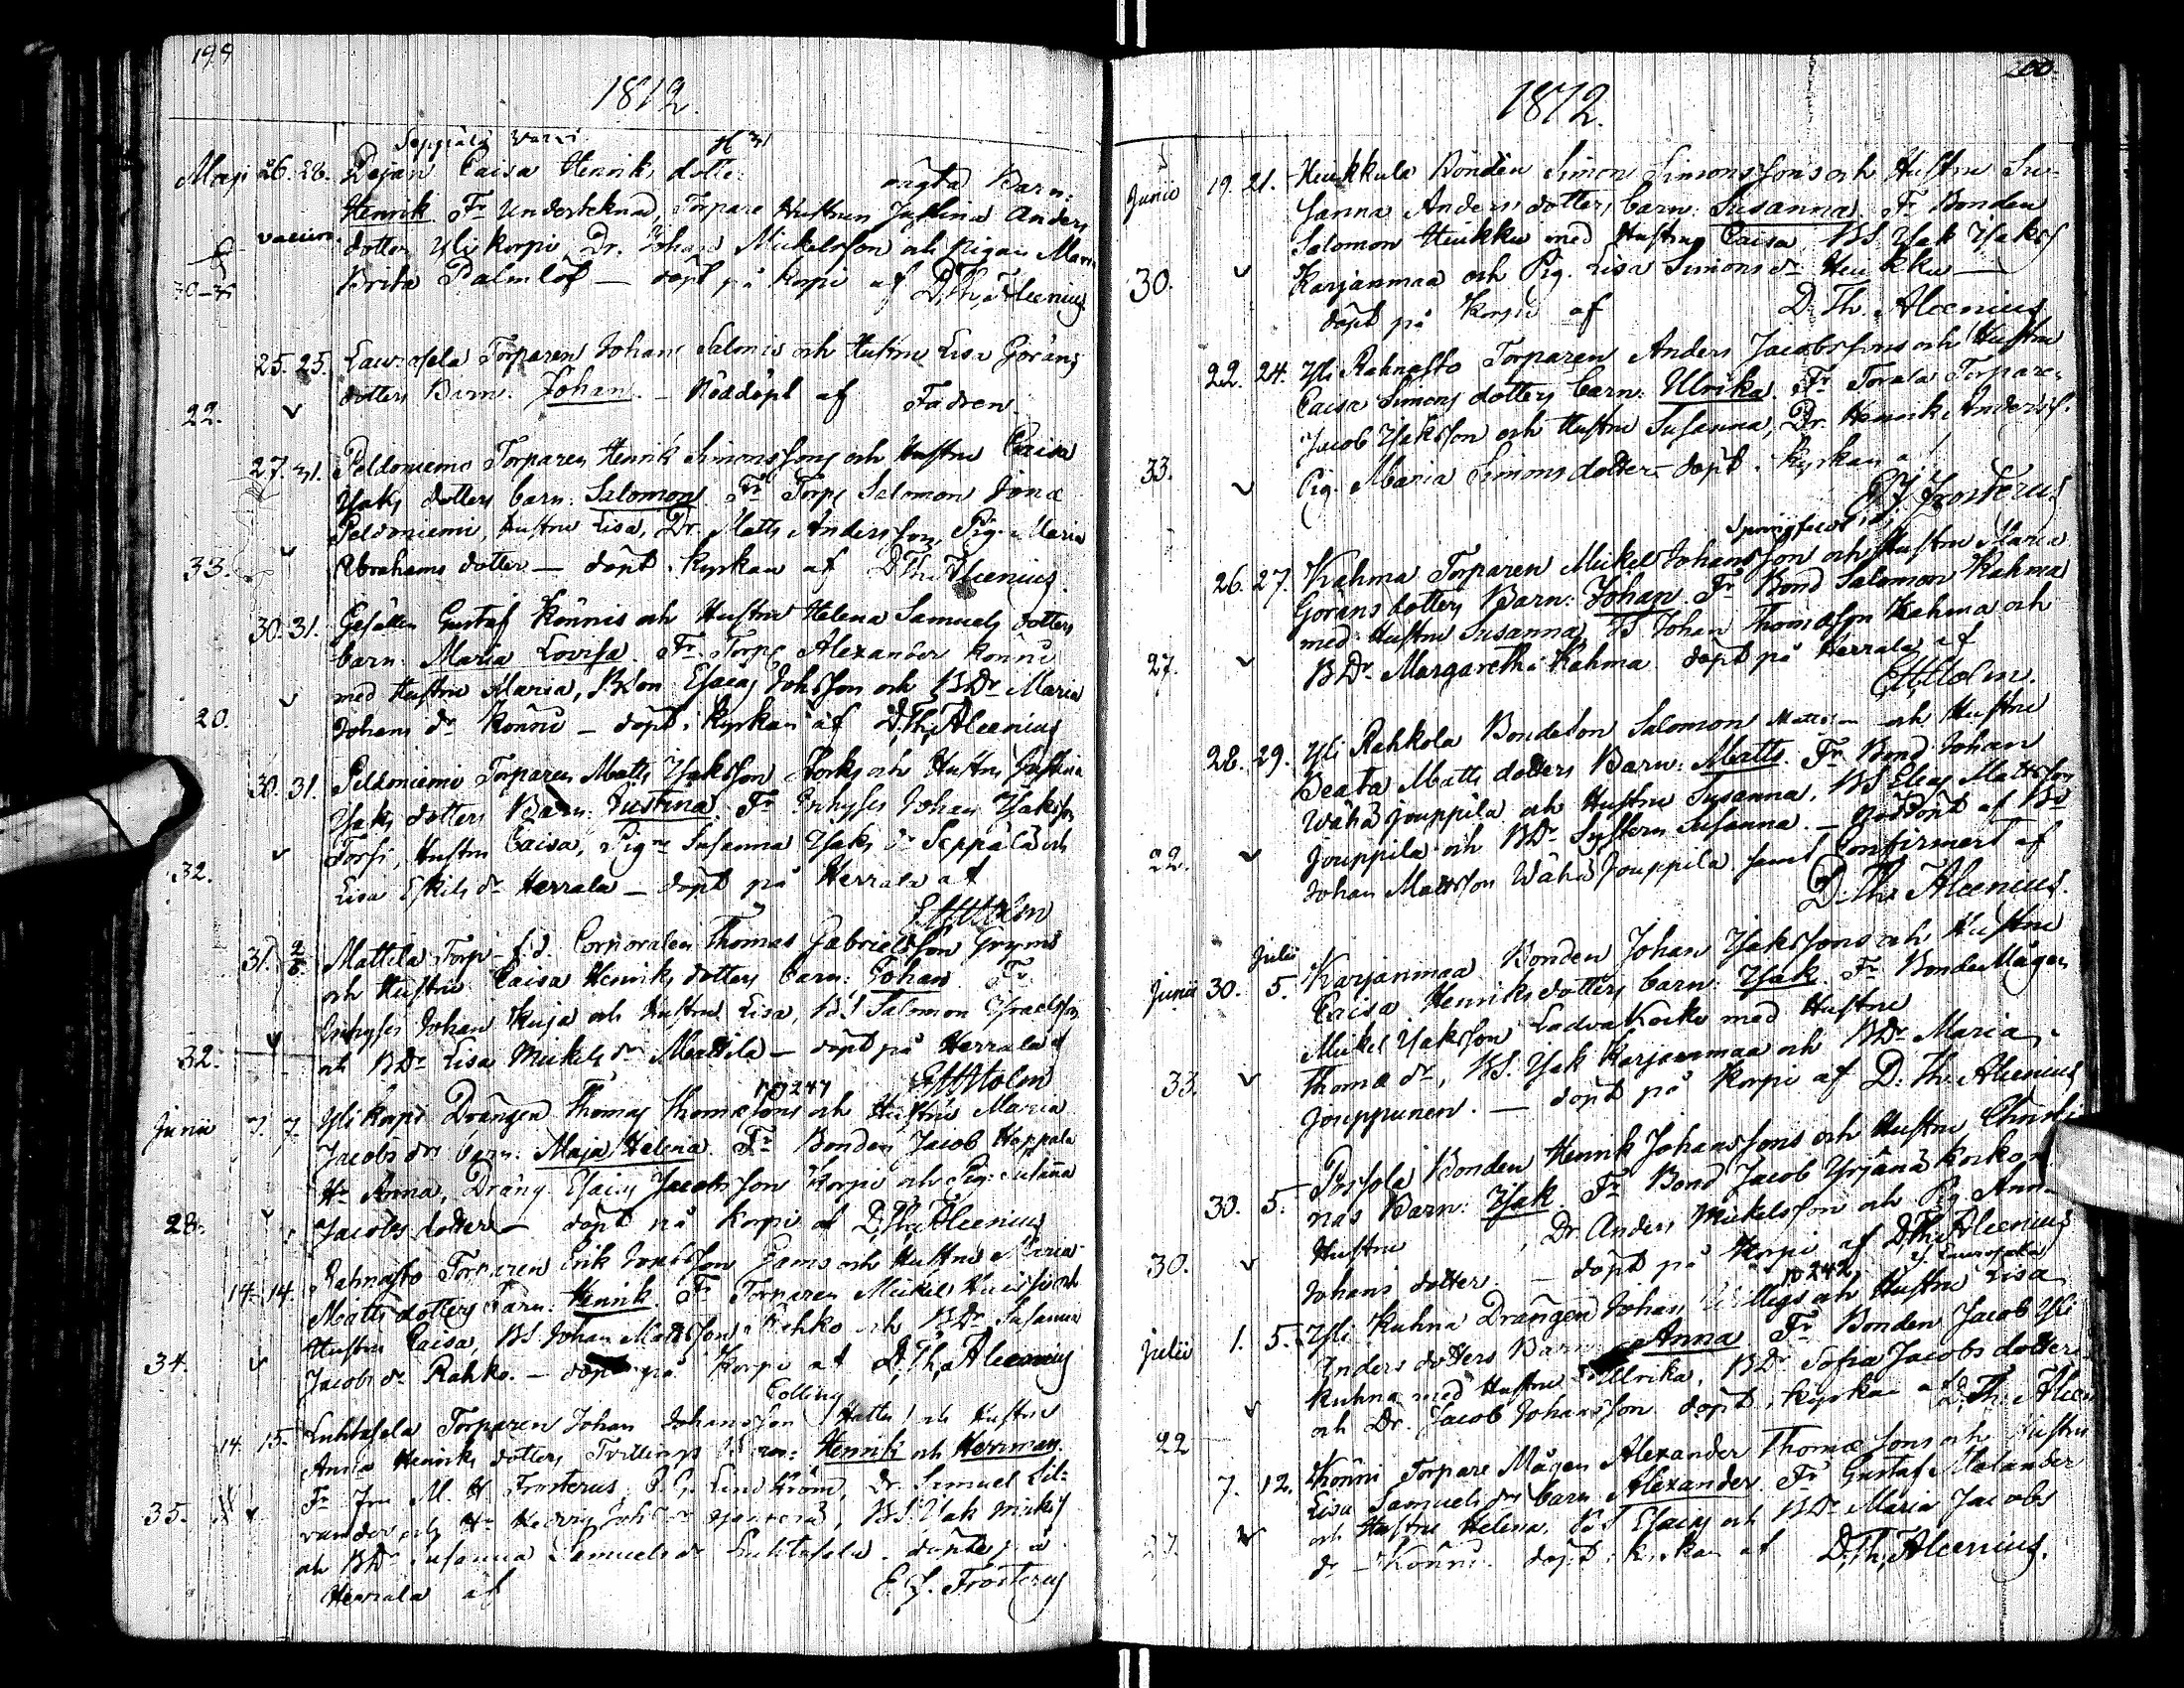 199
1812.
Maji 26. 28. Pigan Caisa Henriks dotter oägta Barn:
Henrik. Fr Underteknad, Torpare Hustrun Justina Anders
vaccin. dotter Ylikorpi Dr. Johan Mickelsson och Pigan Maria
Brita Palmlöf — döpt på Korpi af D. Th. Alcenius
25. 25. Laurosela Torparen Johan Salonis och Hustru Lisa Görans
22. dotters Barn: Johan. — Nöddöpt af Fadren
27. 31. Peldoniemi Torparen Henrik Simonssons och Hustru Caisa
Ysaks dotters barn: Salomon. Fr Torp Salomon
Peldoniemi, hustru Lisa, Dr. Matts Andersson, Pig. Maria
33. Abrahams dotter — döpt i kyrkan af D. Th. Alcenius
30. 31. Gesällen Gustaf Könnis och Hustru Helena Samuels dotters
barn: Maria Lovisa. Fr. Torp Alexander Könni
med Hustru Maria, BSon Esaias Johsson och BDr Maria
20. Johans dr Könni — döpt i kyrkan af D. Th. Alcenius
30. 31. Peldoniemi Torparen Matts Ysaksson och Hustru Justina
Ysaks dotters Barn: Justina. Fr Inhyses Johan Ysaksson
Torsi, Hustru Caisa, Pigan Susanna Ysaks dr Seppälä och
32. Lisa Eskils dr Herrala — döpt på Herrala af
31. Mattila Torp f.d. Corporalen Thomas Gabrielsson Gryms
och Hustru Caisa Henriks dotters barn: Johan. Fr
Inhyses Johan Kuja och Hustru Lisa, BS Salomon Israelsson
32. och BDr Lisa Mickels dr Mattila — döpt på Herrala af
Junii 7. 7. Ylikorpi Drängen Thomas Thomæsons och Hustru Maria
Jacobs drs barn: Maja Helena. Fr Bonden Jacob Happala
Hu Anna, Dräng Esaias Jacobsson Korpi och Pig: Susanna
28. Jacobs dotter — döpt på Korpi af D. Th. Alcenius
14. 14. Rahnasto Torparen Erik Gams och Hustru Maria
Matts dotters Barn: Henrik. Fr Torparen Mickel
Hustru Caisa, BS Johan Mattsson Rahko och BDr Susanna
34. Jacobs dr Rahko. — döpt på Korpi af D. Th. Alcenius
14. 15. Luhtasela Torparen Johan Johansson och Hustru
Anna Henriks dotters Tvillings Barn: Henrik och Herrman.
Fr Fru M. H. Frosterus, Dr. Samuel
35. och BDr Susanna Samuels dr Luhtasela. döpte på
Herrala af E. J. Frosterus
200.
1812.
Junii 19. 21. Heikkula Bonden Simon Simonssons och Hustru Su-
sanna Anders dotters barn: Susanna. Fr Bonden
Salomon Heikku med Hustru Caisa, BS. Ysak Ysaks
30. Karjanmaa och Pig. Lisa Simons dr Heikku —
döpt på Korpi af D. Th. Alcenius
22. 24. Yli Rahnasto Torparen Anders Jacobssons och Hustru
Caisa Simons dotters barn: Ulrika. Fr. Torala Torparen
Jacob Ysaksson och Hustru Susanna, Dr. Henrik Anderss.
33. Pig. Maria Simons dotter — döpt i kyrkan af
E J Frosterus
26. 27. Kahma Torparen Mickel Johansson och Hustru Maria
Görans dotters Barn: Johan. Fr Bond Salomon Kahma
med Hustru Susanna, BS Johan Thomasson Kahma och
27. BDr. Margaretha Kahma döpt på Herrala af
28. 29. Yli Rahkola Bondeson Salomon och Hustru
Beata Matts dotters Barn: Matts. Fr Bond Johan
Wähä Jouppila och Hustru Susanna, BS Elias Mattsson
22. Jouppila och BDr Systern Susanna. — Nöddöpt af
Johan Mattsson Wähä Jouppila samt Confirmert af
D. Th. Alcenius.
Julii
Junii 30. 5. Karjanmaa Bonden Johan Ysakssons och Hustru
Caisa Henriks dotters barn: Ysak. Fr Bonde Mågen
Mickel Ysaksson Ladva Korki med Hustru
33. Thomæ dr, BS. Ysak Karjanmaa och BDr Maria
Jouppunen. — döpt på Korpi af D. Th. Alcenius
30. 5. Possola Bonden Henrik Johanssons och Hustru
nas Barn: Ysak. Fr Bond Jacob Yrjänä
Hustru , Dr Anders Mickelsson och Pig. Ann-
30. Johans dotter. — döpt på Korpi af D. Th. Alcenius
Julii 1. 5. Yli Kuhna Drängen Johan och Hustru Lisa
Anders dotters Barn Anna Fr Bonden Jacob Yli
Kuhna med Hustru Ullrika, BDr Sofia Jacobs dotter
22 och Dr. Jacob Johansson döpt i kyrkan af D. Th. Alcen
7. 12. Könni Torpare Mågen Alexander Thomæsons och Hustru
Lisa Samuels drs barn Alexander. Fr Gustaf Malander
och Hustru Helena, BS Esaias och BDr Maria Jacobs
27. dr — Könni. döpt i kyrkan af D. Th. Alcenius.